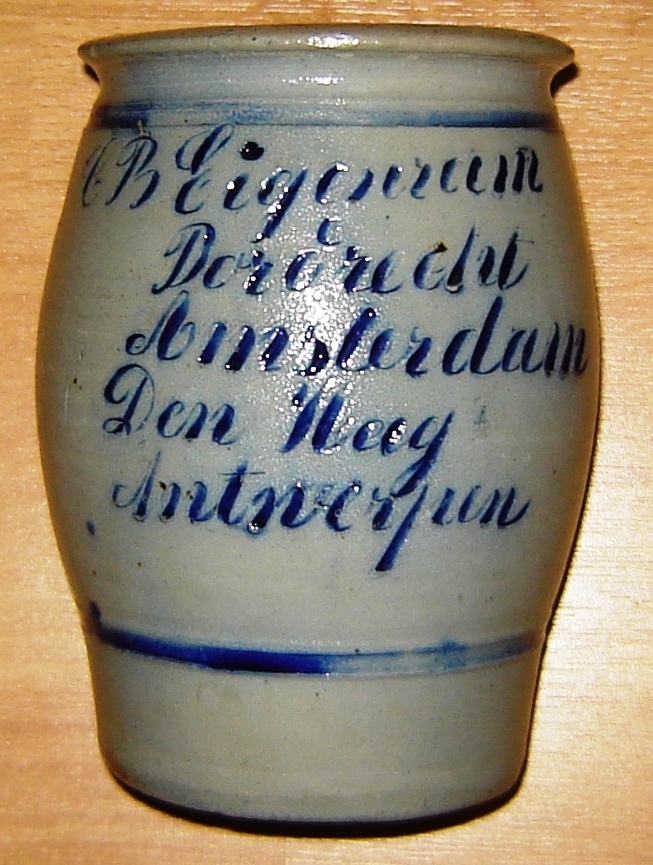 C B Eigenram
Dordrecht
Amsterdam
Den Hag
Antwerpen